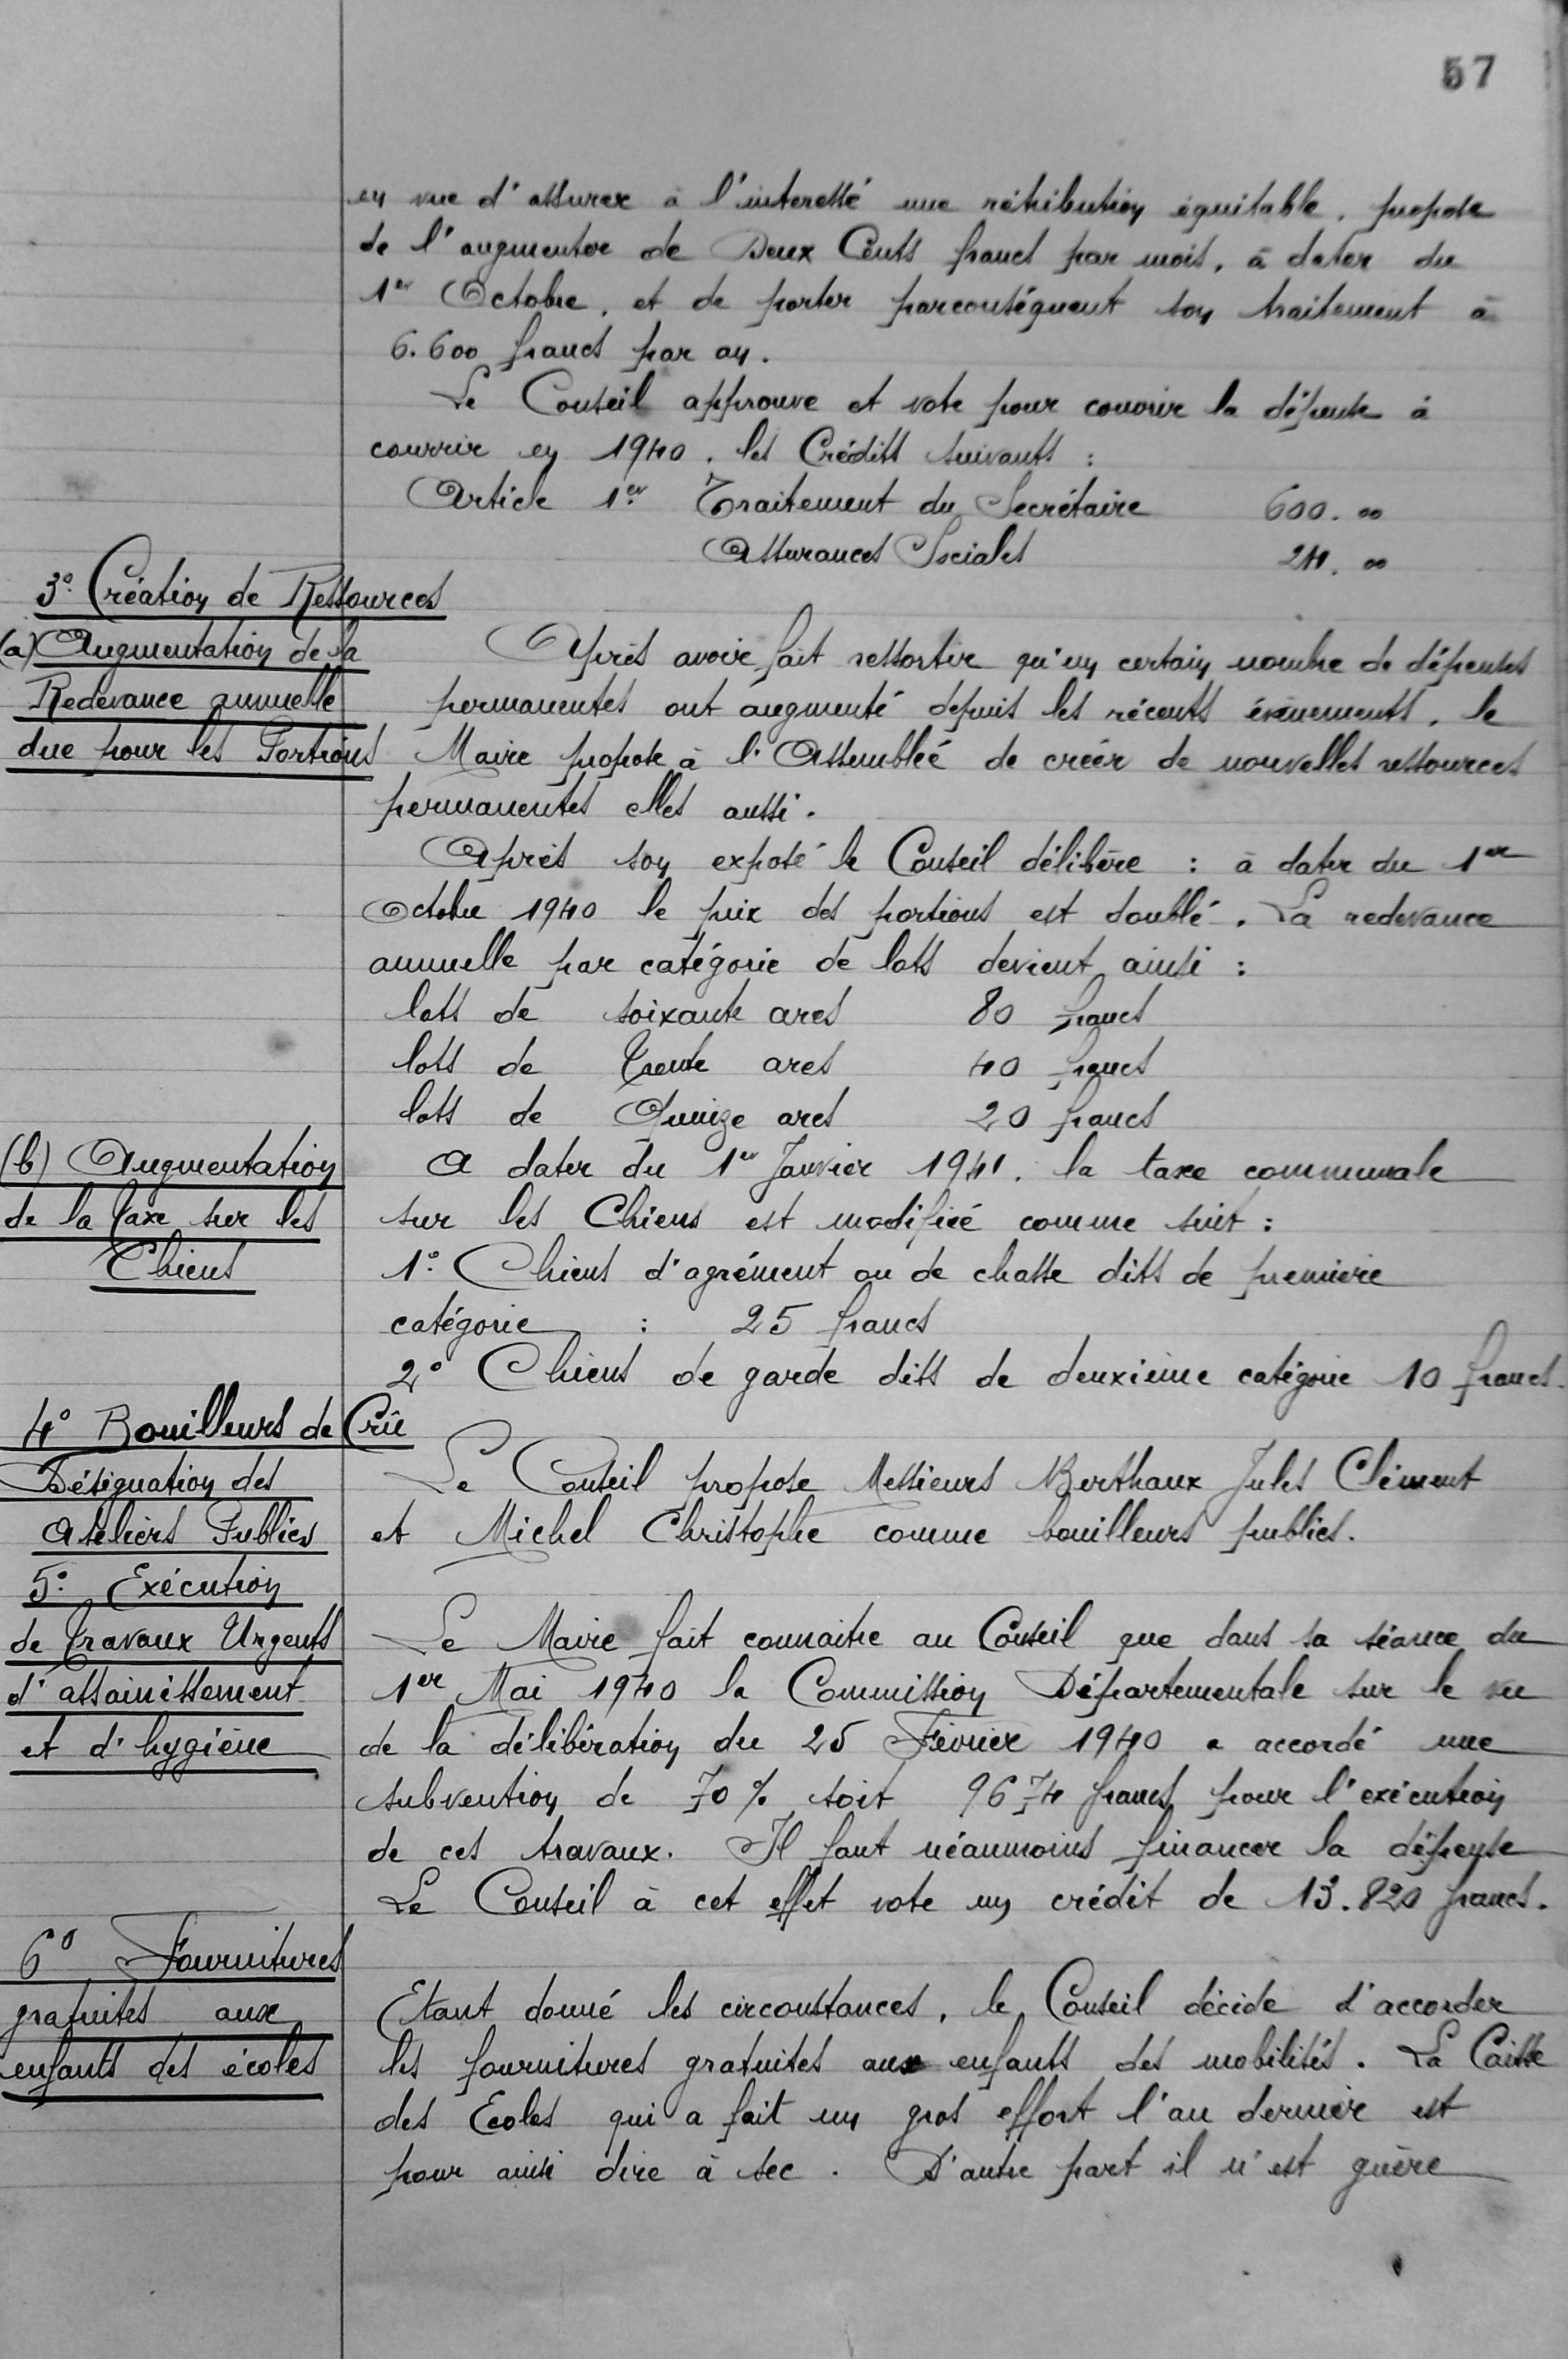 57
en vue d'assurer à l'interessé une rétribution équitable, propose
de l'augmenter de Deux Cents francs par mois, à dater du
1er Octobre, et de porter parconséquent son traitement à
6.600 francs par an.
Le Conseil approuve et vote pour couvrir la dépense à
courrir en 1940, les Crédits suivants :
Article 1er Traitement du Secrétaire 600.00
Assurances Sociales 24.00
3° Création de Ressources
(a) Augmentation de la
Redevance annuelle
due pour les Portions
Après avoir fait ressortir qu'un certain nombre de dépenses
permanentes ont augmenté depuis les récents évènements, le
Maire propose à l'Assemblée de créer de nouvelles ressources
permanentes elles aussi.
Après son exposé le Conseil délibère : à dater du 1er
Octobre 1940 le prix des portions est doublé. La redevance
annuelle par catégorie de lots devient ainsi :
lots de soixante ares 80 francs
lots de Trente ares 40 francs
lots de Quinze ares 20 francs
(b) Augmentation
de la Taxe sur les
Chiens
A dater du 1er Janvier 1941, la taxe communale
sur les Chiens est modifiée comme suit :
1° Chiens d'agrément ou de chasse dits de première
catégorie : 25 francs
2° Chiens de garde dits de deuxième catégorie 10 francs.
4° Bouilleurs de Crû
Désignation des
Ateliers Publics
Le Conseil propose Messieurs Berthaux Jules Clément
et Michel Christophe comme bouilleurs publics.
5° Exécution
de Travaux Urgents
d'assainissement
et d'hygiène
Le Maire fait connaitre au Conseil que dans sa séance du
1er Mai 1940 la Commission Départementale sur le vu
de la délibération du 25 Février 1940 a accordé une
subvention de 70 % soit 9674 francs pour l'exécution
de ces travaux. Il faut néanmoins financer la dépense
Le Conseil à cet effet vote un crédit de 13.820 francs.
6° Fournitures
gratuites aux
enfants des écoles
Etant donné les circonstances, le Conseil décide d'accorder
les fournitures gratuites aux enfants des mobilisés. La Caisse
des Ecoles qui a fait un gros effort l'an dernier est
pour ainsi dire à sec. D'autre part il n'est guère